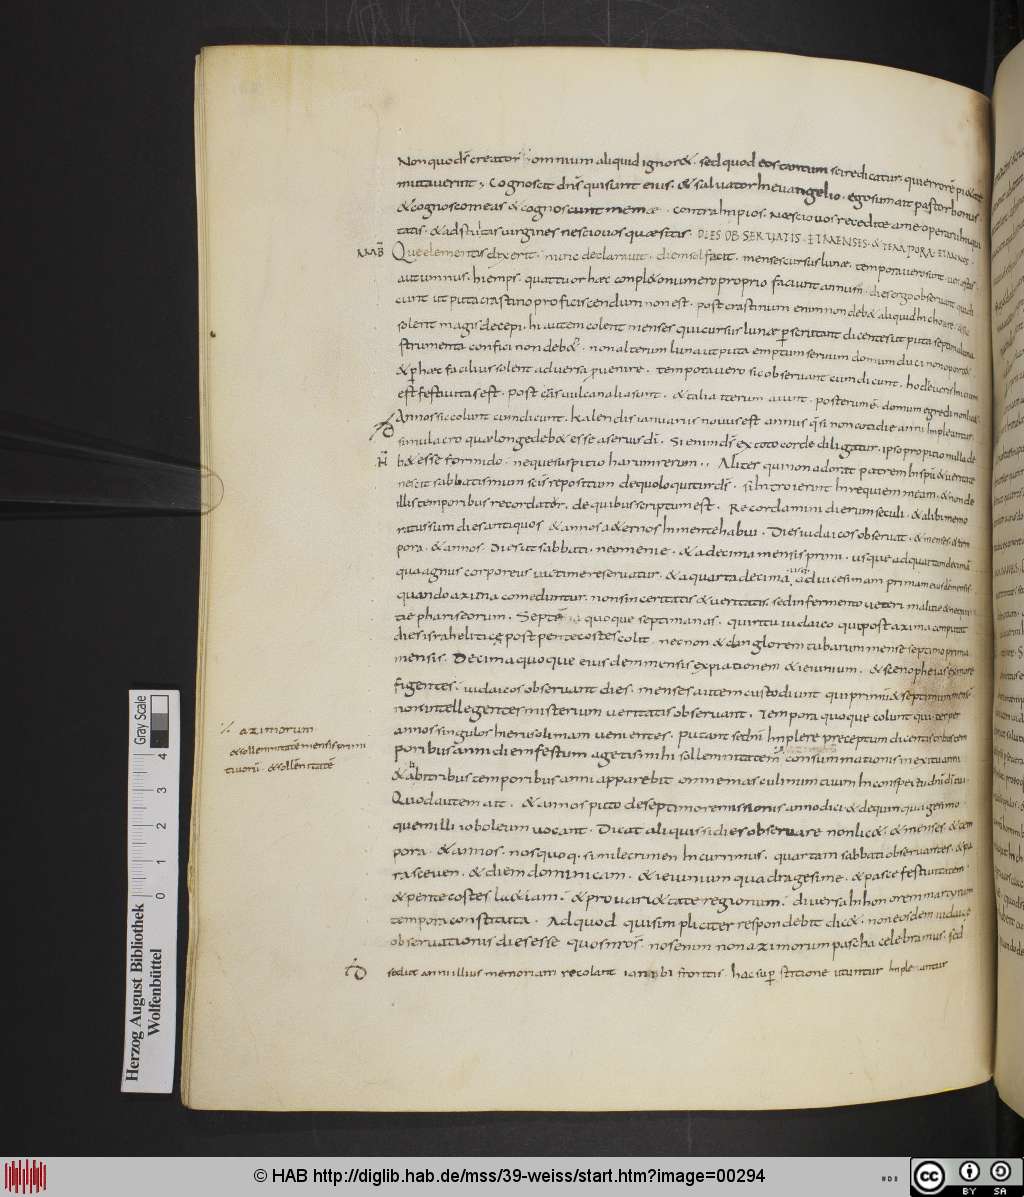 Non quod ds creator omnium aliquid ignoret. sed quod eos tantum scire dicatur. qui errorē
mutaverint. Cognoscit dns qui sunt eius. & salvator in evangelio. ego sum ait pastor bonus.
& cognosco meas & cognoscunt me meae. contra impios. Nescio vos recedite a me operarii
tatis. & ad stultas virgines nescio vos quaesitis. DIES OBSERVATIS. ET MENSES. & TEMPORA. ET ANNOS.
AMB Que elementis dixerit. nunc declaravit. diem sol facit. menses cursus lunae. tempora vero sunt. ver. aestas
autumnus. hiemps. quattuor haec conpleto numero proprio faciunt annum. dies ergo observant. qui di
cunt ut puta crastino proficiscendum non est. post crastinum enim non debet aliquid inchoare.
solent magis decepi. hi autem colent menses qui cursus lunae perscrutant dicentes ut puta septima luna
strumenta confici non debēt. non alterum luna ut puta emptum servum domum duci non oportet
& p haec facilius solent adversa pvenire. tempora vero sic observant cum dicunt. hodie veris
est festivitas est. post cras vulcanalia sunt. & talia iterum aiunt. posterum ē. domum egredi non licet
Annos sic colunt cum dicunt. kalendis ianuariis novus est annus qsi non cotidie anni impleantur.
simulacro quae longe debet esse a servis dī. Si enim ds ex toto corde diligatur. ipso propitio nulla de
H bet esse formido. neque suspitio harum rerum. Aliter qui non adorat patrem in spū & veritate
nescit sabbatismum scis repositum de quo loquitur ds. si introierint in requiem meam. & non de
illis temporibus recordatur. de quibus scriptum est. Recordamini dierum seculi. & alibi memo
ratus sum dies antiquos & annos aeternos in mente habui. Dies iudaicos observat. & menses. & tem
pora. & annos. Dies ut sabbati. neomeniae. & a decima mensis primi. usque ad quartam decimā
qua agnus corporeus victime reservatur. & a quarta decima. usq; ad vicesimam primam eius dem mensis.
quando azima comeduntur. non sinceritatis & veritatis. sed in fermento veteri malitiae & nequi
tiae phariseorum. Septē quoque septimanas. qui ritu iudaico qui post azima computat
dies israheliticę post pentecostes colit. nec non & clanglorem tubarum mense septimo prima
mensis. Decima quoque eiusdem mensis expiationem & ieiunium. & scenophegias ex more
figentes. iudaicos observant dies. menses autem custodiunt qui primū & septimum mense
non intellegentes misterium veritatis observant. Tempora quoque colunt qui ter per
annos singulos hierusolimam venientes. putant se dnī implere preceptum dicentis. tribus tem
poribus anni diem festum agetis mihi sollemnitatem consummationis in exitu anni
& a tribus temporibus anni apparebit omne masculinum tuum in conspectu dnī dī tui.
Quod autem ait. & annos puto de septimo remissionis anno dici. & de quinquagesimo
quem illi iobeleum vocant. Dicat aliquis si dies observare non licet. & menses. & tem
pora. & annos. nos quoq. simile crimen incurrimus. quartam sabbati observantes. & pa
rasceven. & diem dominicam. & ieiunium quadragesime. & pasce festivitatem
& pentecostes laetitiam. & pro varietate regionum. diversa in honorem martyrum
tempora constituta. Ad quod qui simpliciter respondebit dicet. non eosdem iudaicę
observationis dies esse quos nrōs. nos enim non azimorum pascha celebramus. sed
sed ut anni illius memoriam recolant iani bi frontis. hac sup stitione utuntur
azimorum
& sollemnitatē mensis primi
tivorū. & sollēnitatē
Gray Scale
0 1 2 3 4
Herzog August Bibliothek
Wolfenbüttel
© HAB http://diglib.hab.de/mss/39-weiss/start.htm?image=00294
cc BY SA